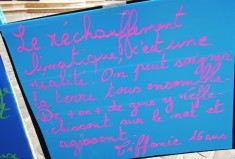 Le réchauffement
climatique, c'est une
réalité. On peut soigner
la terre tous ensemble.
De + en + de gens y réflé-
chissent sur le mot et
agissent.
Tiffanie 16 ans